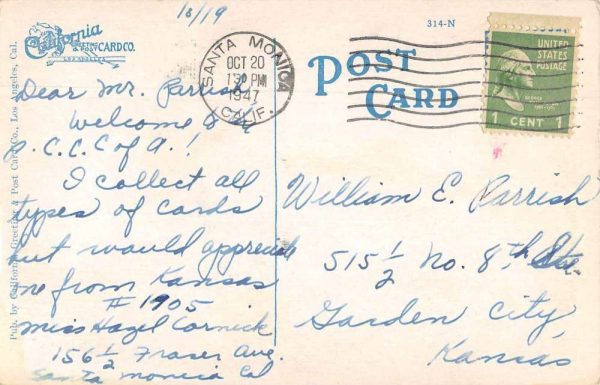 10/19
California
GREETING & POST CARD CO.
LOS ANGELES
314-N
SANTA MONICA
OCT 20
130 PM
1947
CALIF.
POST CARD
UNITED STATES POSTAGE
1 CENT 1
Pub. by California Greeting & Post Card Co., Los Angeles, Cal.
Dear Mr. Parrish,
Welcome to
P.C.C. of A.!
I collect all
types of cards
but would appreciate
one from Kansas
#1905
Miss Hazel Cornick
156½ Fraser Ave.
Santa Monica Cal
William E. Parrish
515½ No. 8th Ste.
Garden City,
Kansas